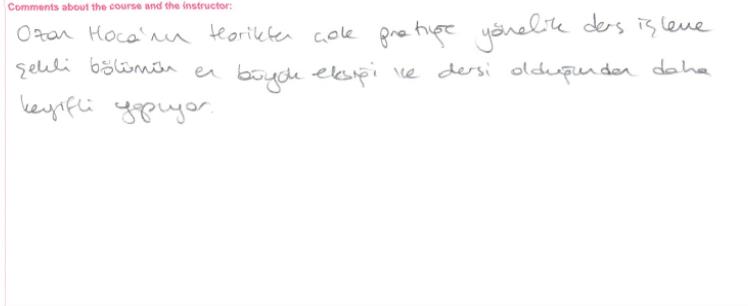 Comments about the course and the instructor:
Ozan Hoca'nın teorikten çok pratiğe yönelik ders işleme
şekli bölümün en büyük eksiği ve dersi olduğundan daha
keyifli yapıyor.